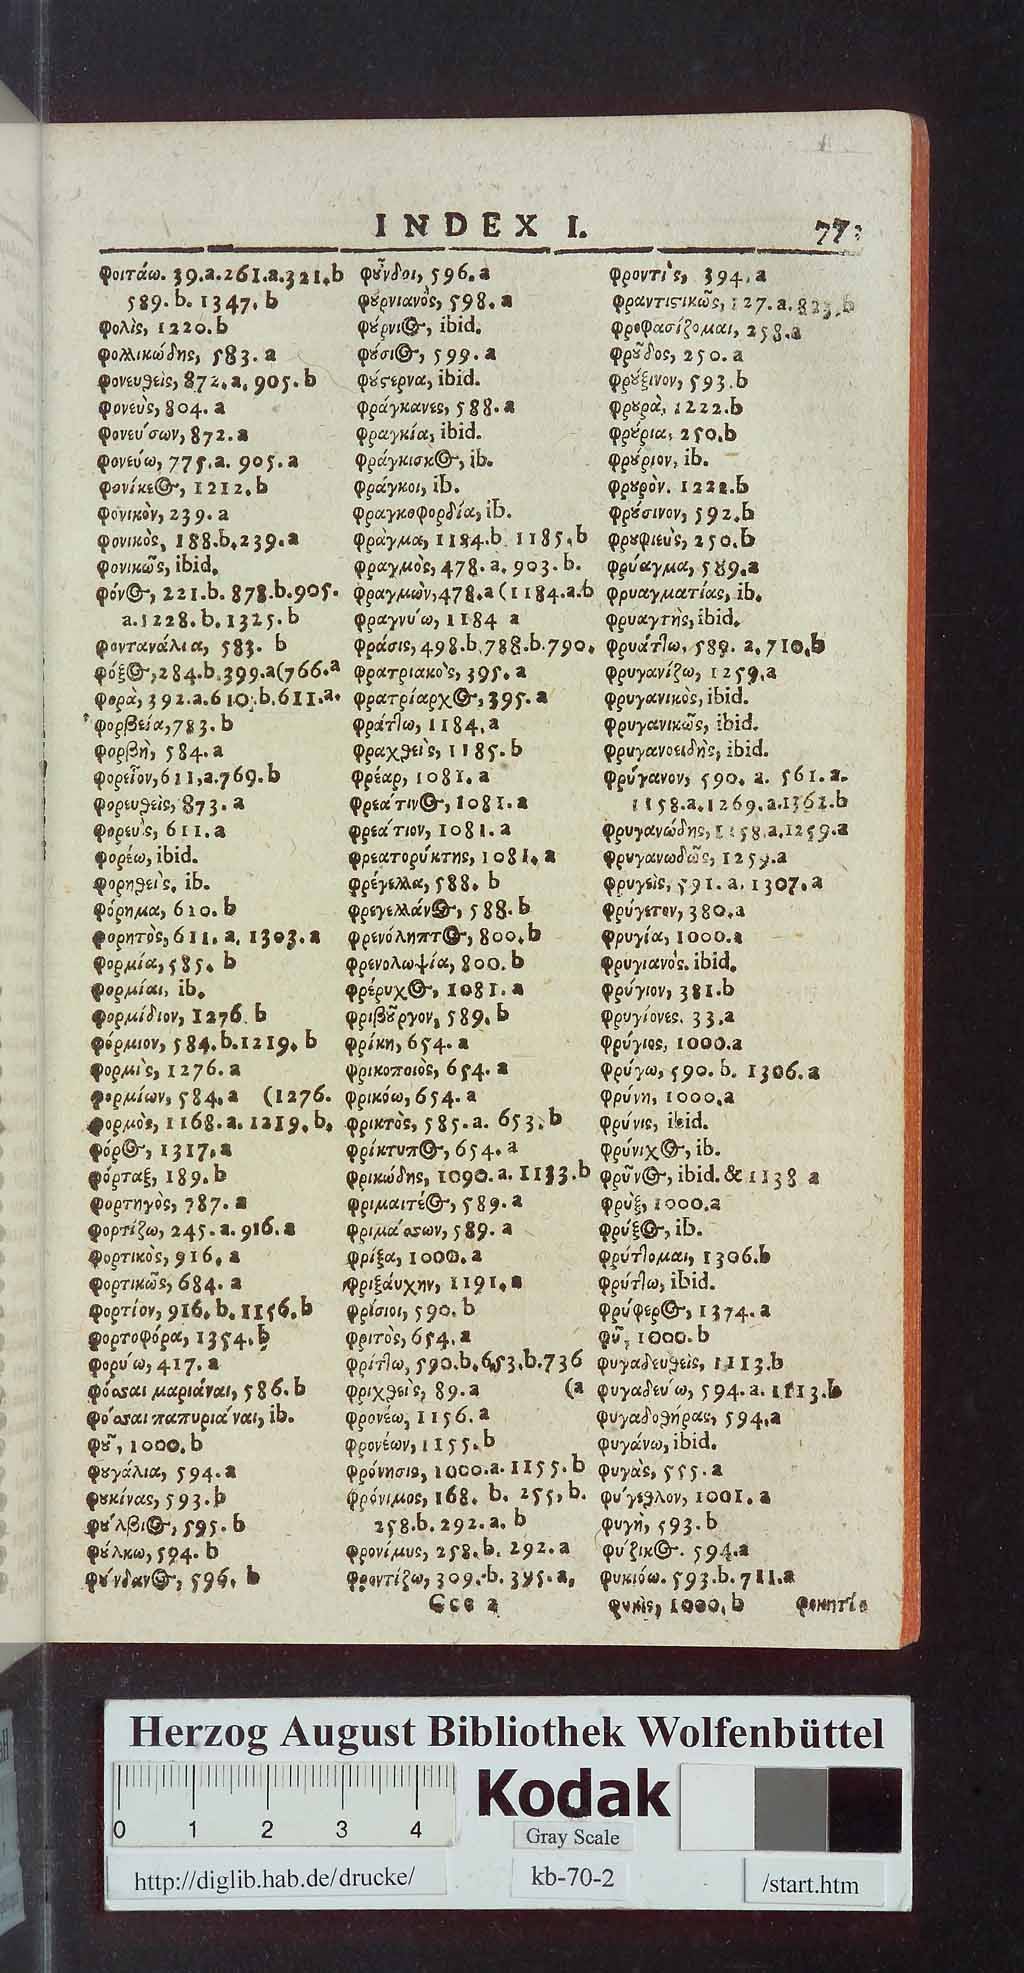 INDEX I.
φοιτάω. 39.a.261.a.321.b
589.b. 1347. b
φολὶς, 1220.b
φολλικώδης, 583. a
φονευθεὶς, 872.a. 905. b
φονεὺς, 804. a
φονεύσων, 872. a
φονεύω, 775.a. 905. a
φονικὸν, 239. a
φονικὸς, 188.b.239.a
φονικῶς, ibid.
φόνος, 221.b. 878.b.905.
a.1228.b. 1325. b
φοντανάλια, 583. b
φόξος, 284.b.399.a(766.a
φορὰ, 392.a.610.b.611.a.
φορβεία, 783. b
φορβὴ, 584. a
φορεῖον, 611,a.769. b
φορευθεὶς, 873. a
φορεὺς, 611. a
φορέω, ibid.
φορηθεὶς, ib.
φόρημα, 610. b
φορητὸς, 611. a. 1303. a
φορμία, 585. b
φορμίαι, ib.
φορμίδιον, 1276. b
φόρμιον, 584.b.1219. b
φορμὶς, 1276. a
φορμίων, 584. a (1276.
φορμὸς, 1168.a. 1219. b.
φόρος, 1317. a
φόρταξ, 189. b
φορτηγὸς, 787. a
φορτίζω, 245. a. 916. a
φορτικὸς, 916. a
φορτικῶς, 684. a
φορτίον, 916. b. 1156. b
φορτοφόρα, 1354. b
φορύω, 417. a
φόσσαι μαριάναι, 586. b
φόσσαι παπυριάναι, ib.
φοῦ, 1000. b
φουγάλια, 594. a
φουκίνας, 593. b
φούλβιος, 595. b
φούλκω, 594. b
φούνδανος, 596. b
φοῦνδοι, 596. a
φουρνιανὸς, 598. a
φούρνιος, ibid.
φούσιος, 599. a
φούστερνα, ibid.
φράγκανες, 588. a
φραγκία, ibid.
φράγκισκος, ib.
φράγκοι, ib.
φραγκοφορδία, ib.
φράγμα, 1184.b. 1185. b
φραγμὸς, 478. a. 903. b.
φραγμῶν, 478.a (1184.a.b
φραγνύω, 1184 a
φράσις, 498.b.788.b.790.
φρατριακὸς, 395. a
φρατρίαρχος, 395. a
φράτλω, 1184. a
φραχθεὶς, 1185. b
φρέαρ, 1081. a
φρεάτινος, 1081. a
φρεάτιον, 1081. a
φρεατορύκτης, 1081. a
φρέγελλα, 588. b
φρεγελλάνος, 588. b
φρενόληπτος, 800. b
φρενολωψία, 800. b
φρέρυχος, 1081. a
φριβοῦργον, 589. b
φρίκη, 654. a
φρικοποιὸς, 654. a
φρικόω, 654. a
φρικτὸς, 585.a. 653. b
φρίκτυπος, 654. a
φρικώδης, 1090. a. 1133. b
φριμαιτέος, 589. a
φριμάσσων, 589. a
φρίξα, 1000. a
φριξάυχην, 1191. a
φρίσιοι, 590. b
φριτὸς, 654. a
φρίτλω, 590.b.653.b.736
φριχθεὶς, 89. a (a
φρονέω, 1156. a
φρονέων, 1155. b
φρόνησις, 1000.a. 1155. b
φρόνιμος, 168. b. 255. b.
258.b. 292. a. b
φρονίμως, 258. b. 292. a
φροντίζω, 309. b. 395. a.
Ccc 2
φροντὶς, 394. a
φροντιστικῶς, 127. a. 823. b
φροφασίζομαι, 258. a
φροῦδος, 250. a
φρούξινον, 593. b
φρουρὰ, 1222. b
φρούρια, 250. b
φρούριον, ib.
φρουρὸν. 1222. b
φρούσινον, 592. b
φρουφιεὺς, 250. b
φρύαγμα, 589. a
φρυαγματίας, ib.
φρυαγτὴς, ibid.
φρυάτλω, 589. a. 710. b
φρυγανίζω, 1259. a
φρυγανικὸς, ibid.
φρυγανικῶς, ibid.
φρυγανοειδὴς, ibid.
φρύγανον, 590. a. 561. a.
1158.a.1269.a.1361.b
φρυγανώδης, 1158.a.1259.a
φρυγανωδῶς, 1259. a
φρυγεὶς, 591. a. 1307. a
φρύγετον, 380. a
φρυγία, 1000. a
φρυγιανὸς. ibid.
φρύγιον, 381. b
φρυγίονες. 33. a
φρύγιος, 1000. a
φρύγω, 590. b. 1306. a
φρύνη, 1000. a
φρύνις, ibid.
φρύνιχος, ib.
φρῦνος, ibid. & 1138 a
φρὺξ, 1000. a
φρύξος, ib.
φρύτλομαι, 1306. b
φρύτλω, ibid.
φρύφερος, 1374. a
φῦ, 1000. b
φυγαδευθεὶς, 1113. b
φυγαδεύω, 594. a. 1113. b
φυγαδοθήρας, 594. a
φυγάνω, ibid.
φυγὰς, 555. a
φύγεθλον, 1001. a
φυγὴ, 593. b
φύζικος. 594. a
φυκιόω. 593. b. 711. a
φυκὶς, 1000. b
Herzog August Bibliothek Wolfenbüttel
0 1 2 3 4
Kodak
Gray Scale
http://diglib.hab.de/drucke/
kb-70-2
/start.htm